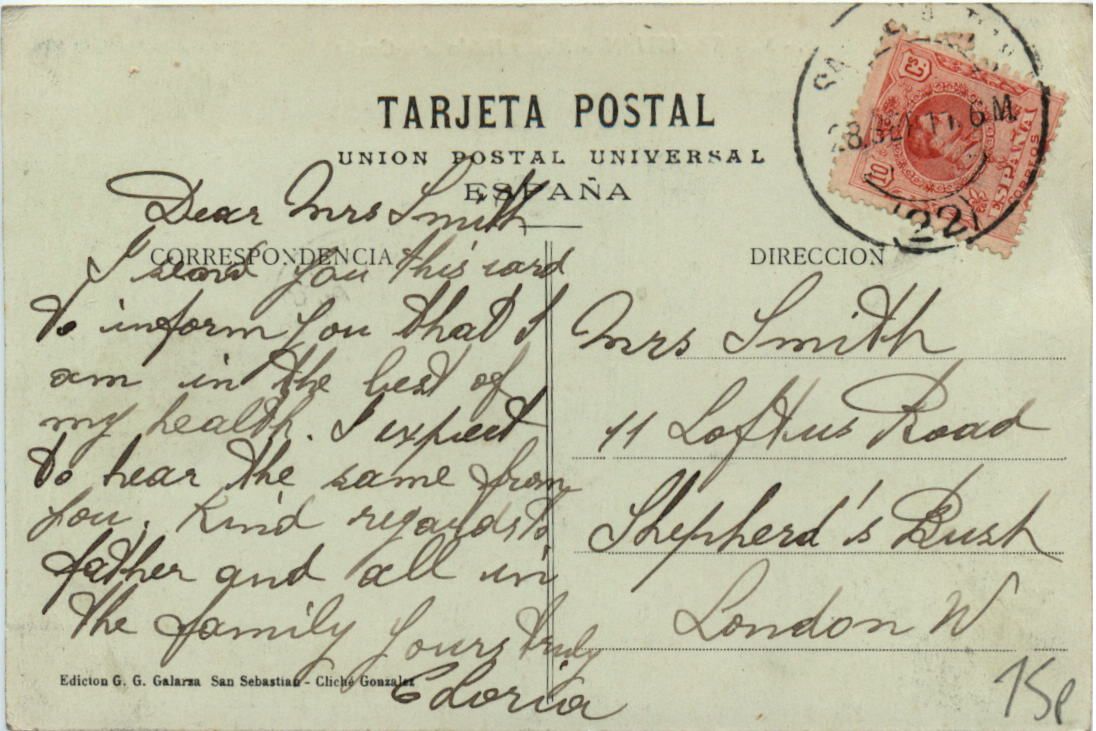 TARJETA POSTAL
UNION POSTAL UNIVERSAL
ESPAÑA
CORRESPONDENCIA
Dear Mrs Smith
I send you this card
to inform you that I
am in the best of
my health. I expect
to hear the same from
you. Kind regards to
father and all in
the family yours truly
Gloria
Edicion G. G. Galarza San Sebastian - Cliché Gonzalez
DIRECCION
Mrs Smith
11 Loftus Road
Shepherd's Bush
London W
15p
10 Cs
ESPAÑA
CORREOS
28. 11. 6 M
(22)